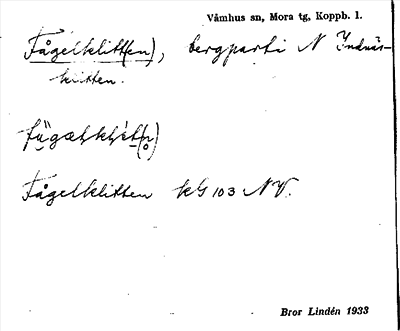 Våmhus sn, Mora tg, Koppb. l.
Fågelklitt(en), bergparti N Indnäs-
klitten.
Fågelklitten kG 103 NV.
Bror Lindén 1933